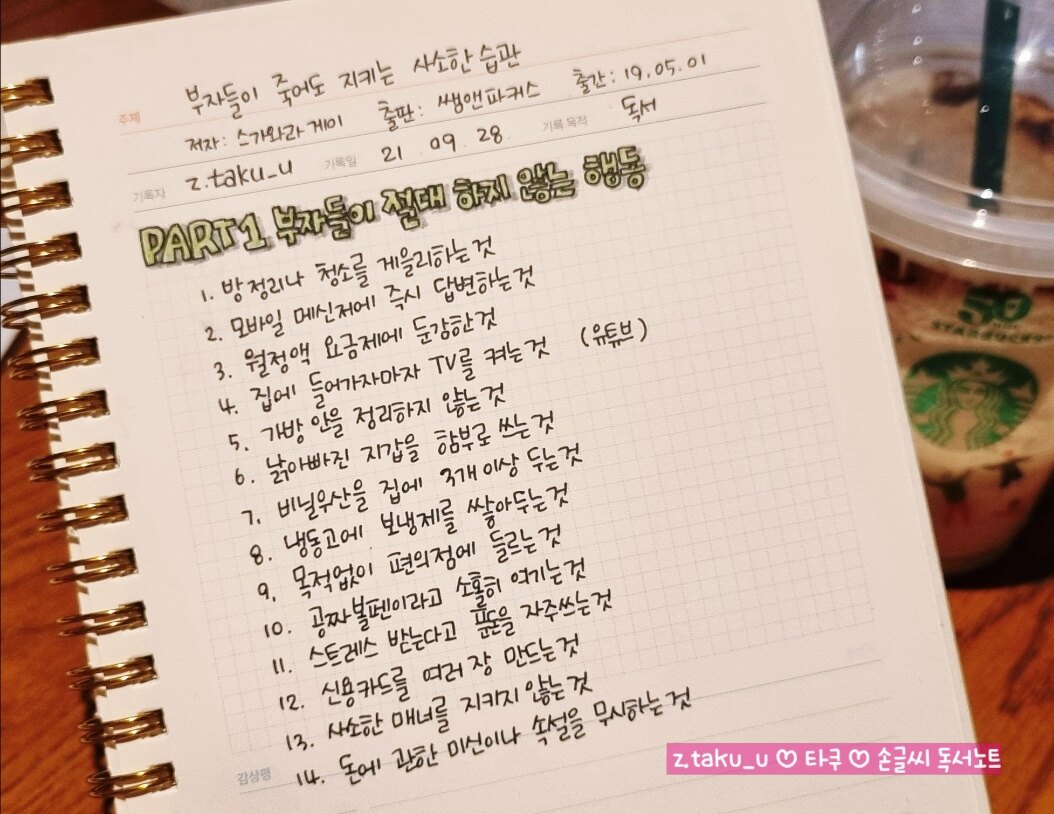 주제 부자들이 죽어도 지키는 사소한 습관
저자: 스가와라 게이 출판: 쌤앤파커스 출간: 19.05.01
기록자 z.taku_u 기록일 21.09.28 기록 목적 독서
PART1 부자들이 절대 하지 않는 행동
1. 방정리나 청소를 게을리하는 것
2. 모바일 메신저에 즉시 답변하는 것
3. 월정액 요금제에 둔감한 것
4. 집에 들어가자마자 TV를 켜는 것 (유튜브)
5. 가방 안을 정리하지 않는 것
6. 낡아빠진 지갑을 함부로 쓰는 것
7. 비닐우산을 집에 3개 이상 두는 것
8. 냉동고에 보냉제를 쌓아두는 것
9. 목적없이 편의점에 들르는 것
10. 공짜볼펜이라고 소홀히 여기는 것
11. 스트레스 받는다고 푼돈을 자주쓰는 것
12. 신용카드를 여러 장 만드는 것
13. 사소한 매너를 지키지 않는 것
14. 돈에 관한 미신이나 속설을 무시하는 것
감상평
50
STARBUCKS
z.taku_u ♡ 타쿠 ♡ 손글씨 독서노트